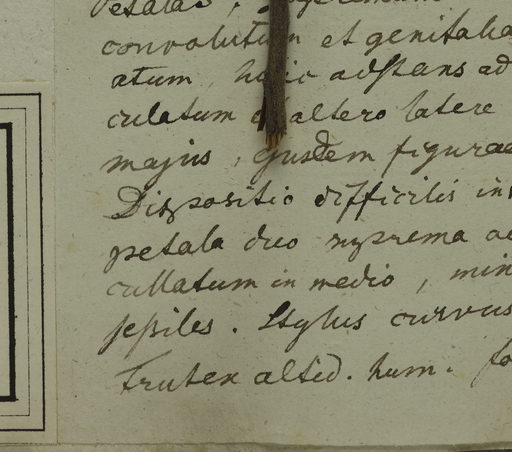 convolutum et genitalia
atum, huic adstans ad
culatum altero latere
majus, ejusdem figurae
Dispositio difficilis in
petala duo suprema
cullatum in medio, min
seſsiles. Stylus curvus
Frutex altid. hum.